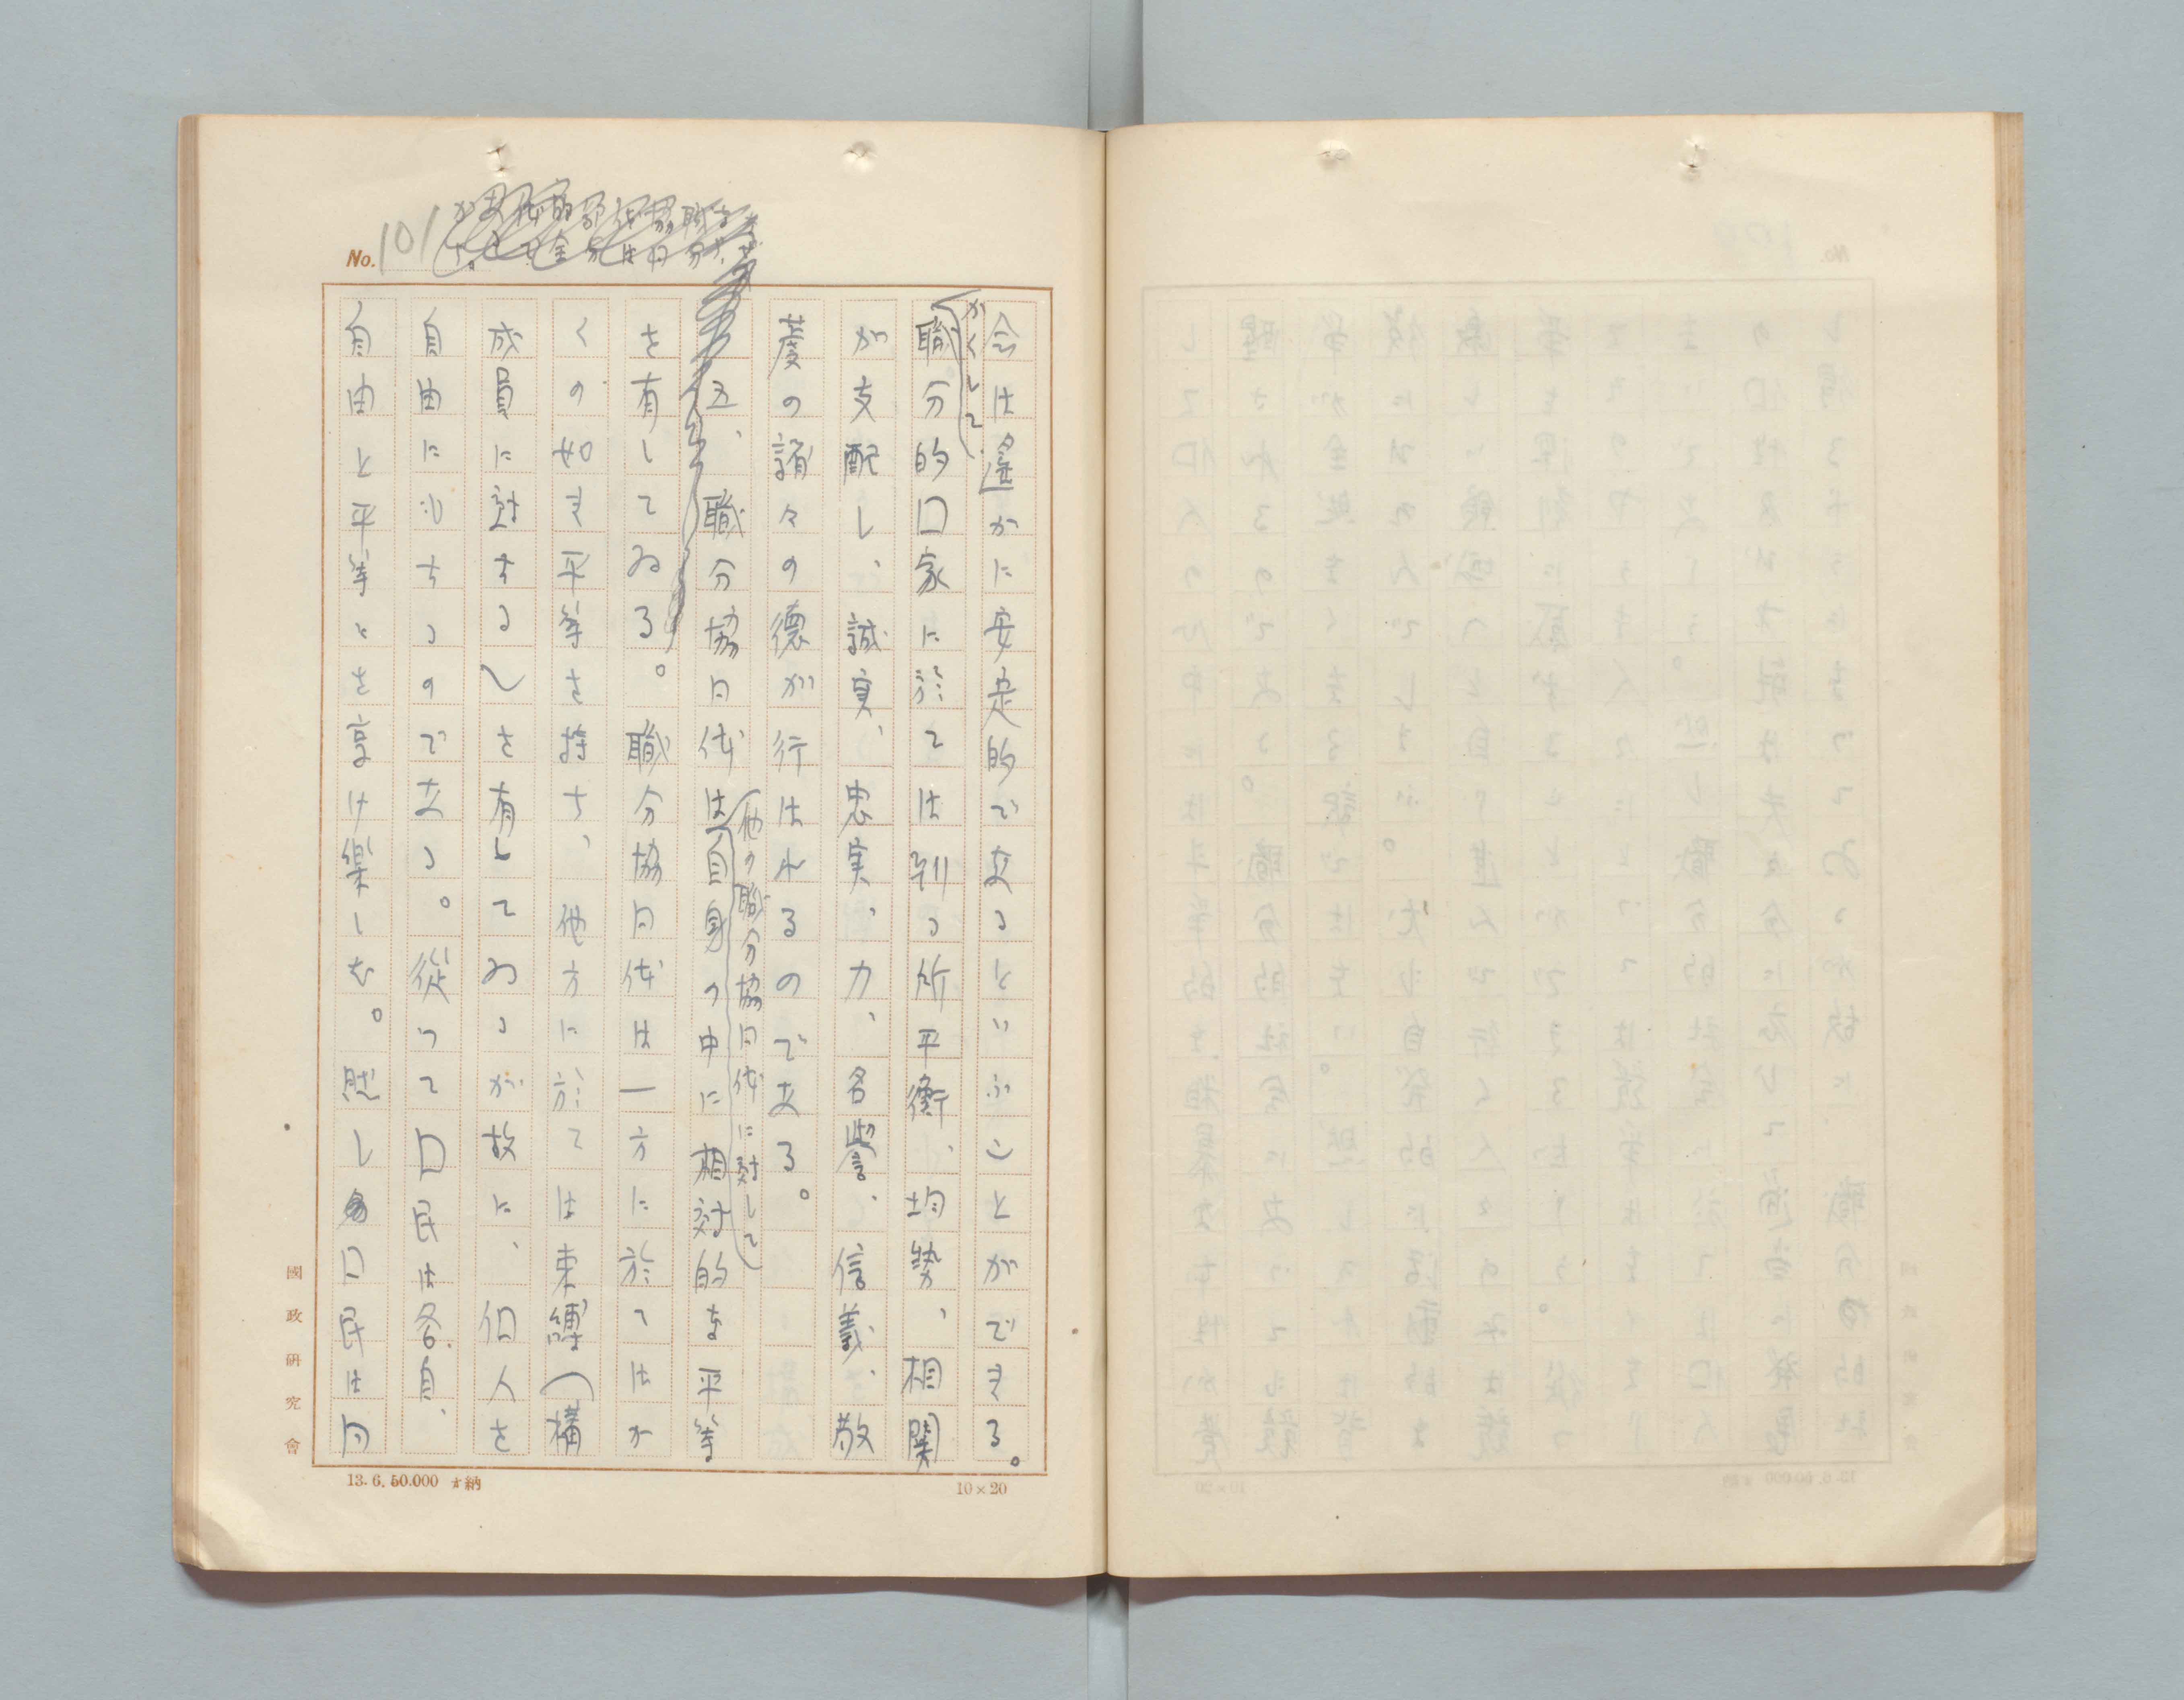 No. 101
会は遙かに安定的であるといふことができる。
かくして、
職分的囗家に於ては別る所平衡、均勢、相関
が支配し、誠実、忠実、力、名誉、信義、敬
虔の諸々の徳が行はれるのである。
他の職分協同体に対して
五、職分協同体は自身の中に相対的な平等
を有してゐる。職分協同体は一方に於てはか
くの如き平等を持ち、他方に於ては束縛(構
成員に対する)を有してゐるが故に、個人を
自由にもするのである。従つて囗民は各自、
自由と平等とを享け楽しむ。然し囗民は同
國政研究會
13.6.50.000 才納
10×20